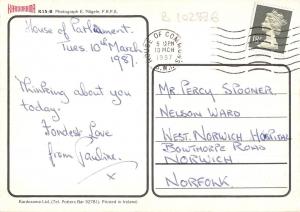 KARDORAMA K15-B Photograph E. Nägele, F.R.P.S.
B 102836
House of Parliament.
Tues. 10th March
1987.
Thinking about you
today.
Fondest Love
from Pauline.
x
HOUSE OF COMMONS
5 15PM
10 MCH
1987
S.W.1
MR PERCY SPOONER
NELSON WARD
WEST NORWICH HOSPITAL
BOWTHORPE ROAD
NORWICH
NORFOLK.
Kardorama Ltd. (Tel. Potters Bar 52781). Printed in Ireland